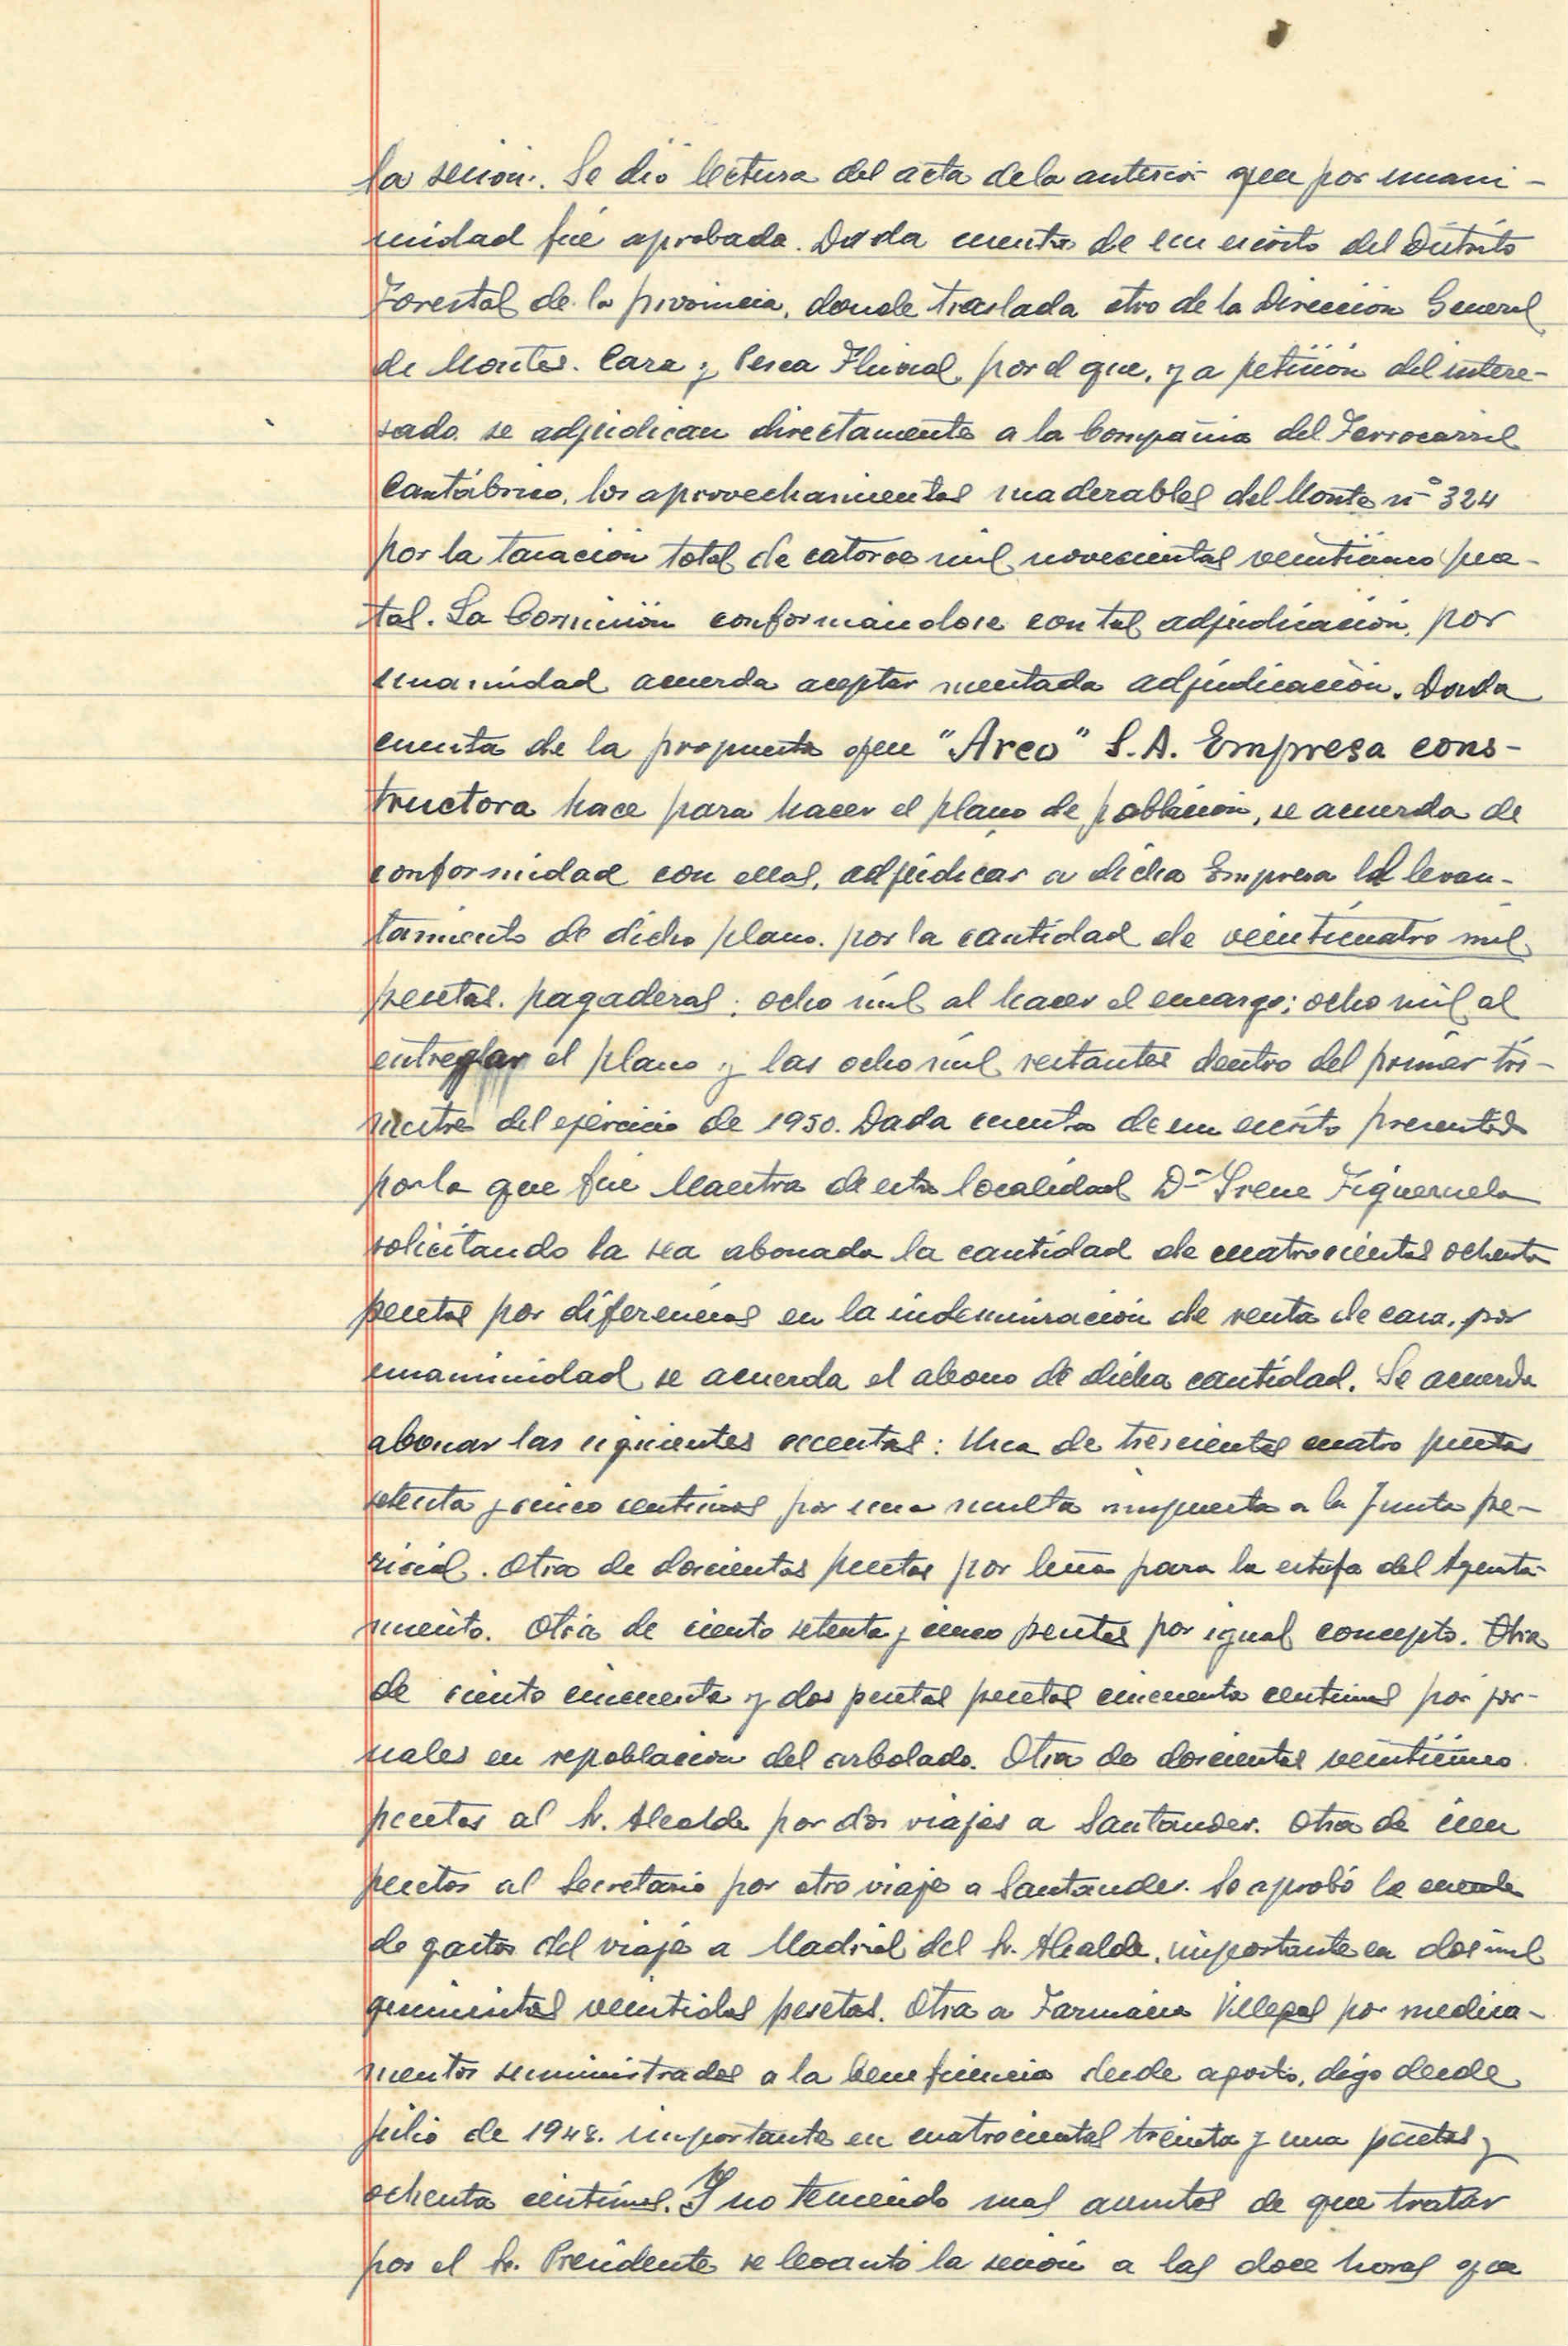 la sesión. Se dió lectura del acta dela anterior que por unani-
midad fué aprobada. Dada cuenta de un escrito del Distrito
Forestal de la provincia, donde traslada otro de la Dirección General
de Montes. Caza y Pesca Fluvial, por el que, y a petición del intere-
sado se adjudican directamente a la Compañia del Ferrocarril
Cantábrico, los aprovechamientos maderables del Monte nº 324
por la tasación total de catorce mil novecientas veinticinco pese-
tas. La Comisión conformándose con tal adjudicación, por
unanimidad acuerda aceptar mentada adjudicación. Dada
cuenta de la propuesta que "Arco" S.A. Empresa cons-
tructora hace para hacer el plano de población, se acuerda de
conformidad con ellas, adjudicar a dicha Empresa el levan-
tamiento de dicho plano. por la cantidad de veinticuatro mil
pesetas. pagaderas: ocho mil al hacer el encargo; ocho mil al
entregar el plano y las ocho mil restantes dentro del primer tri-
mestre del ejercicio de 1950. Dada cuenta de un escrito presentado
por la que fué Maestra de esta localidad Dª Irene Figueruela
solicitando la sea abonada la cantidad de cuatrocientas ochenta
pesetas por diferencias en la indemnización de renta de casa, por
unanimidad se acuerda el abono de dicha cantidad. Se acuerda
abonar las siguientes cuentas: Una de trescientas cuatro pesetas
setenta y cinco centimos por una multa impuesta a la Junta pe-
ricial. Otra de doscientas pesetas por leña para la estufa del Ayunta-
miento. Otra de ciento setenta y cinco pesetas por igual concepto. Otra
de ciento cincuenta y dos pesetas pesetas cincuenta centimos por jor-
nales en repoblación del arbolado. Otra de doscientas veinticinco
pesetas al Sr. Alcalde por dos viajes a Santander. Otra de cien
pesetas al Secretario por otro viaje a Santander. Se aprobó la cuenta
de gastos del viaje a Madrid del Sr. Alcalde, importante en dos mil
quinientas veintidos pesetas. Otra a Farmacia Villegas por medica-
mentos suministrados a la beneficencia desde agosto, digo desde
julio de 1948. importante en cuatrocientas treinta y una pesetas y
ochenta centimos. Y no teniendo mas asuntos de que tratar
por el Sr. Presidente se levantó la sesión a las doce horas que